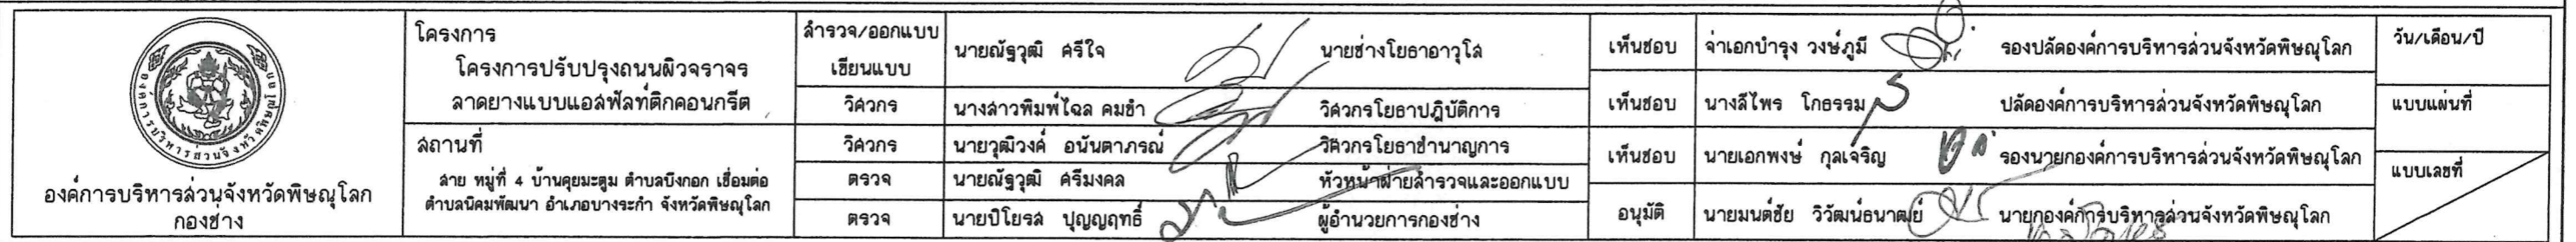 องค์การบริหารส่วนจังหวัดพิษณุโลก
องค์การบริหารส่วนจังหวัดพิษณุโลก
กองช่าง
โครงการ
โครงการปรับปรุงถนนผิวจราจร
ลาดยางแบบแอสฟัลท์ติกคอนกรีต
สถานที่
สาย หมู่ที่ 4 บ้านคุยมะตูม ตำบลบึงกอก เชื่อมต่อ
ตำบลนิคมพัฒนา อำเภอบางระกำ จังหวัดพิษณุโลก
สำรวจ/ออกแบบ
เขียนแบบ
นายณัฐวุฒิ ศรีใจ
นายช่างโยธาอาวุโส
วิศวกร
นางสาวพิมพ์ไฉล คมขำ
วิศวกรโยธาปฏิบัติการ
วิศวกร
นายวุฒิวงศ์ อนันตาภรณ์
วิศวกรโยธาชำนาญการ
ตรวจ
นายณัฐวุฒิ ศรีมงคล
หัวหน้าฝ่ายสำรวจและออกแบบ
ตรวจ
นายปิโยรส ปุญญฤทธิ์
ผู้อำนวยการกองช่าง
เห็นชอบ
จ่าเอกบำรุง วงษ์ภูมี
รองปลัดองค์การบริหารส่วนจังหวัดพิษณุโลก
เห็นชอบ
นางลีไพร โกธรรม
ปลัดองค์การบริหารส่วนจังหวัดพิษณุโลก
เห็นชอบ
นายเอกพงษ์ กุลเจริญ
รองนายกองค์การบริหารส่วนจังหวัดพิษณุโลก
อนุมัติ
นายมนต์ชัย วิวัฒน์ธนาฒย์
นายกองค์การบริหารส่วนจังหวัดพิษณุโลก
วัน/เดือน/ปี
แบบแผ่นที่
แบบเลขที่